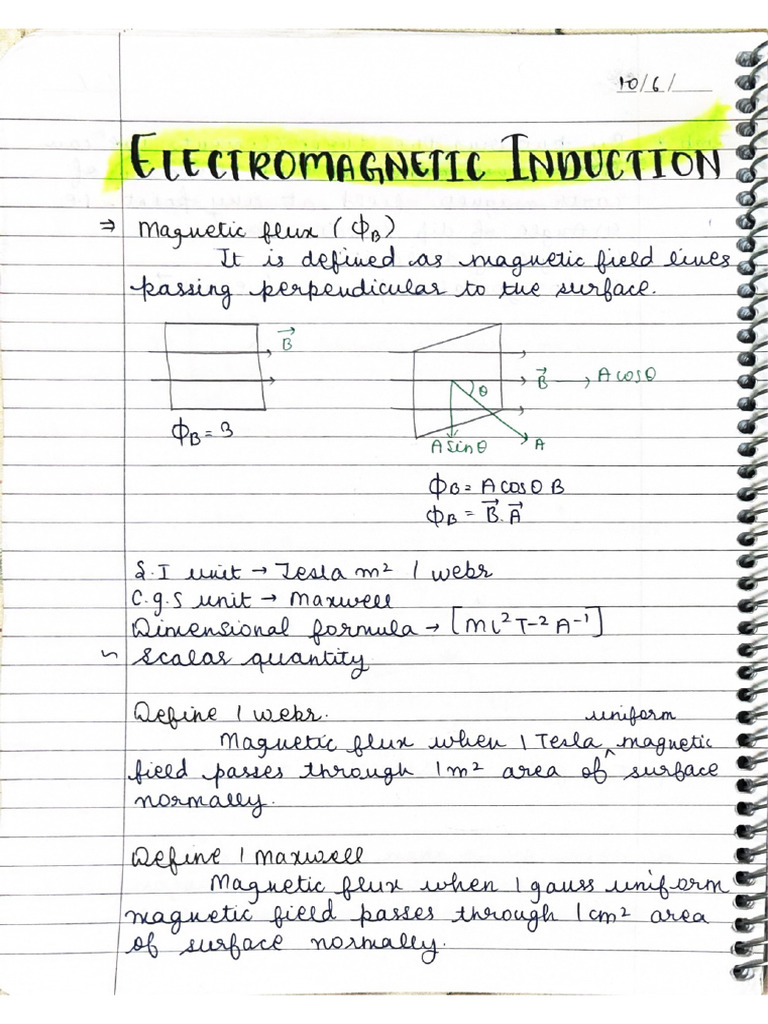 10/6/
ELECTROMAGNETIC INDUCTION
⇒ Magnetic flux (ΦB)
It is defined as magnetic field lines
passing perpendicular to the surface.
B→
ΦB = B
B→ → A cosθ
θ
A sinθ
A
ΦB = A cosθ B
ΦB = B→. A→
S.I unit → Tesla m² / webr
C.g.S unit → Maxwell
Dimensional formula → [ML² T-² A-¹]
~ Scalar quantity
Define 1 webr.
uniform
Magnetic flux when 1 Tesla ^ magnetic
field passes through 1m² area of surface
normally.
Define 1 Maxwell
Magnetic flux when 1 gauss uniform
magnetic field passes through 1cm² area
of surface normally.